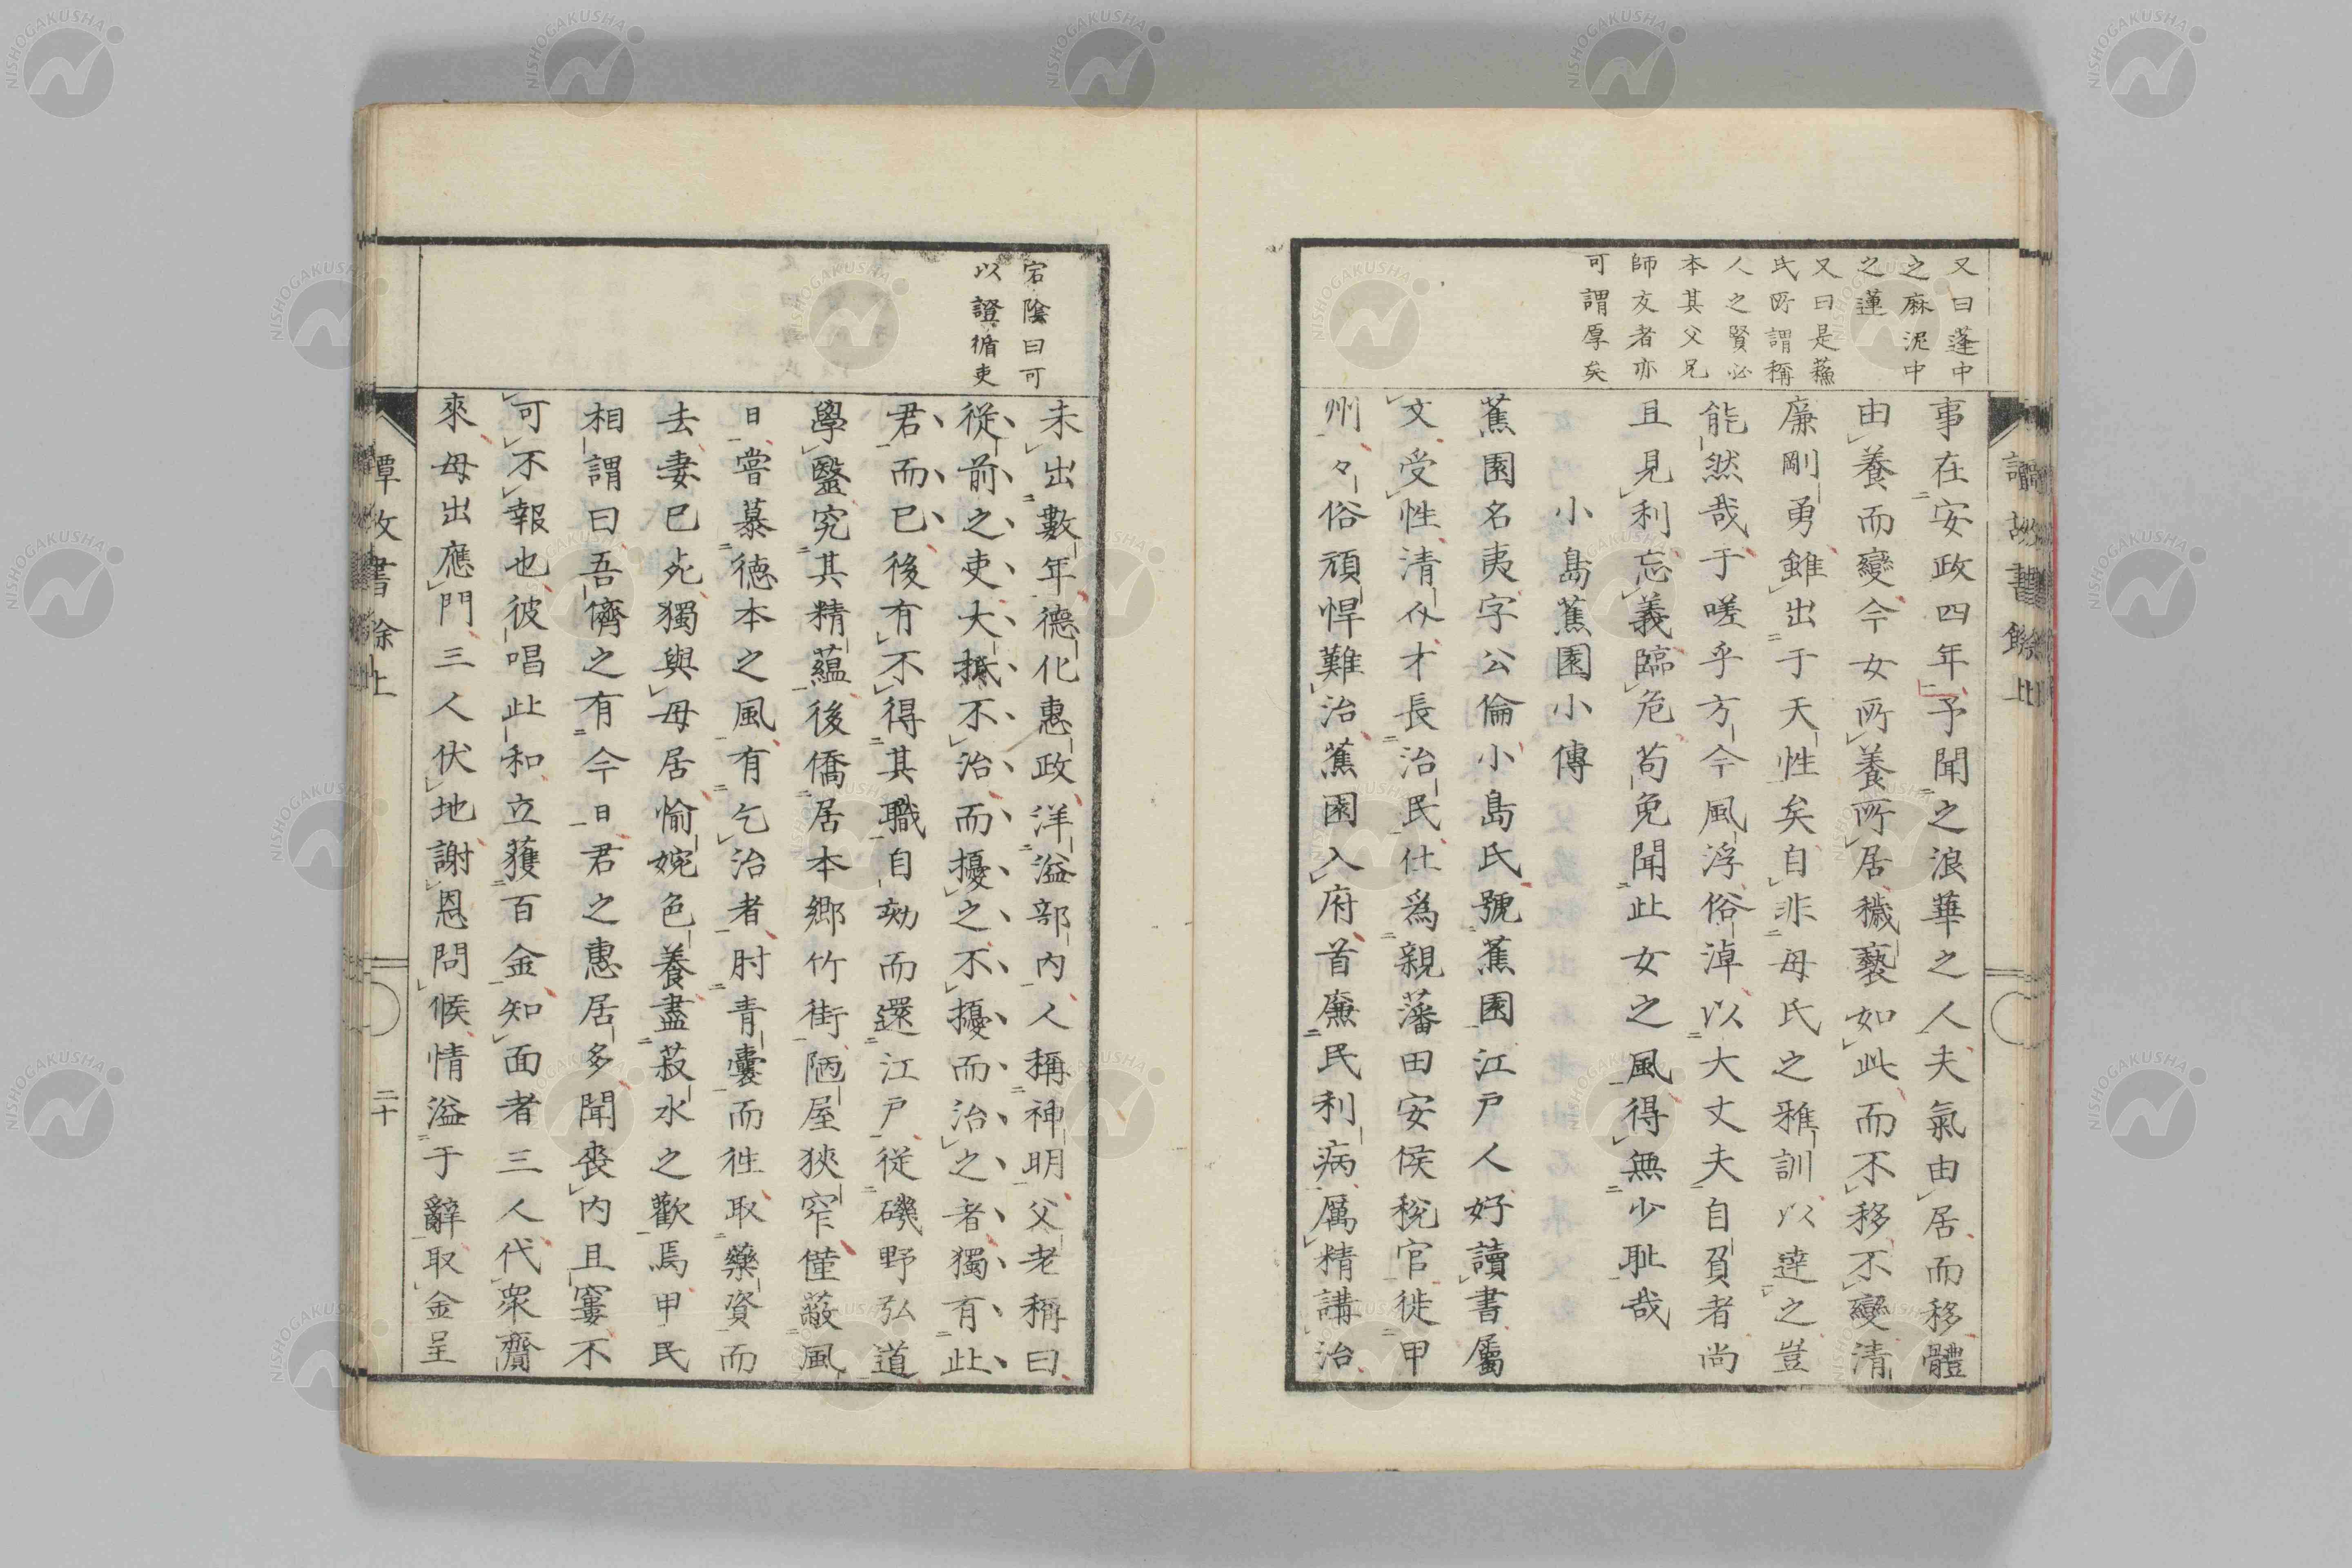 又曰蓬中
之麻泥中
之蓮
又曰是蘓
氏所謂稱
人之賢必
本其父兄
師友者亦
可謂厚矣
事在安政四年予聞之浪華之人夫氣由居而移體
由養而變今女所養所居穢褻如此而不移不變清
廉剛勇雖出于天性矣自非母氏之雅訓以達之豈
能然哉于嗟乎方今風浮俗淖以大丈夫自負者尚
且見利忘義臨危苟免聞此女之風得無少耻哉
小島蕉園小傳
蕉園名夷字公倫小島氏號蕉園江戸人好讀書屬
文受性清介才長治民仕爲親藩田安侯稅官徙甲
州々俗頑悍難治蕉園入府首廉民利病厲精講治
宕陰曰可
以證循吏
未出數年德化惠政洋溢部內人稱神明父老稱曰
從前之吏大抵不治而擾之不擾而治之者獨有此
君而已後有不得其職自劾而還江戸從磯野弘道
學毉究其精蘊後僑居本鄉竹街陋屋狹窄僅蔽風
日嘗慕德本之風有乞治者肘青囊而徃取藥資而
去妻已死獨與母居愉婉色養盡菽水之歡焉甲民
相謂曰吾儕之有今日君之惠居多聞喪內且窶不
可不報也彼唱此和立獲百金知面者三人代衆齎
來母出應門三人伏地謝恩問候情溢于辭取金呈
二十